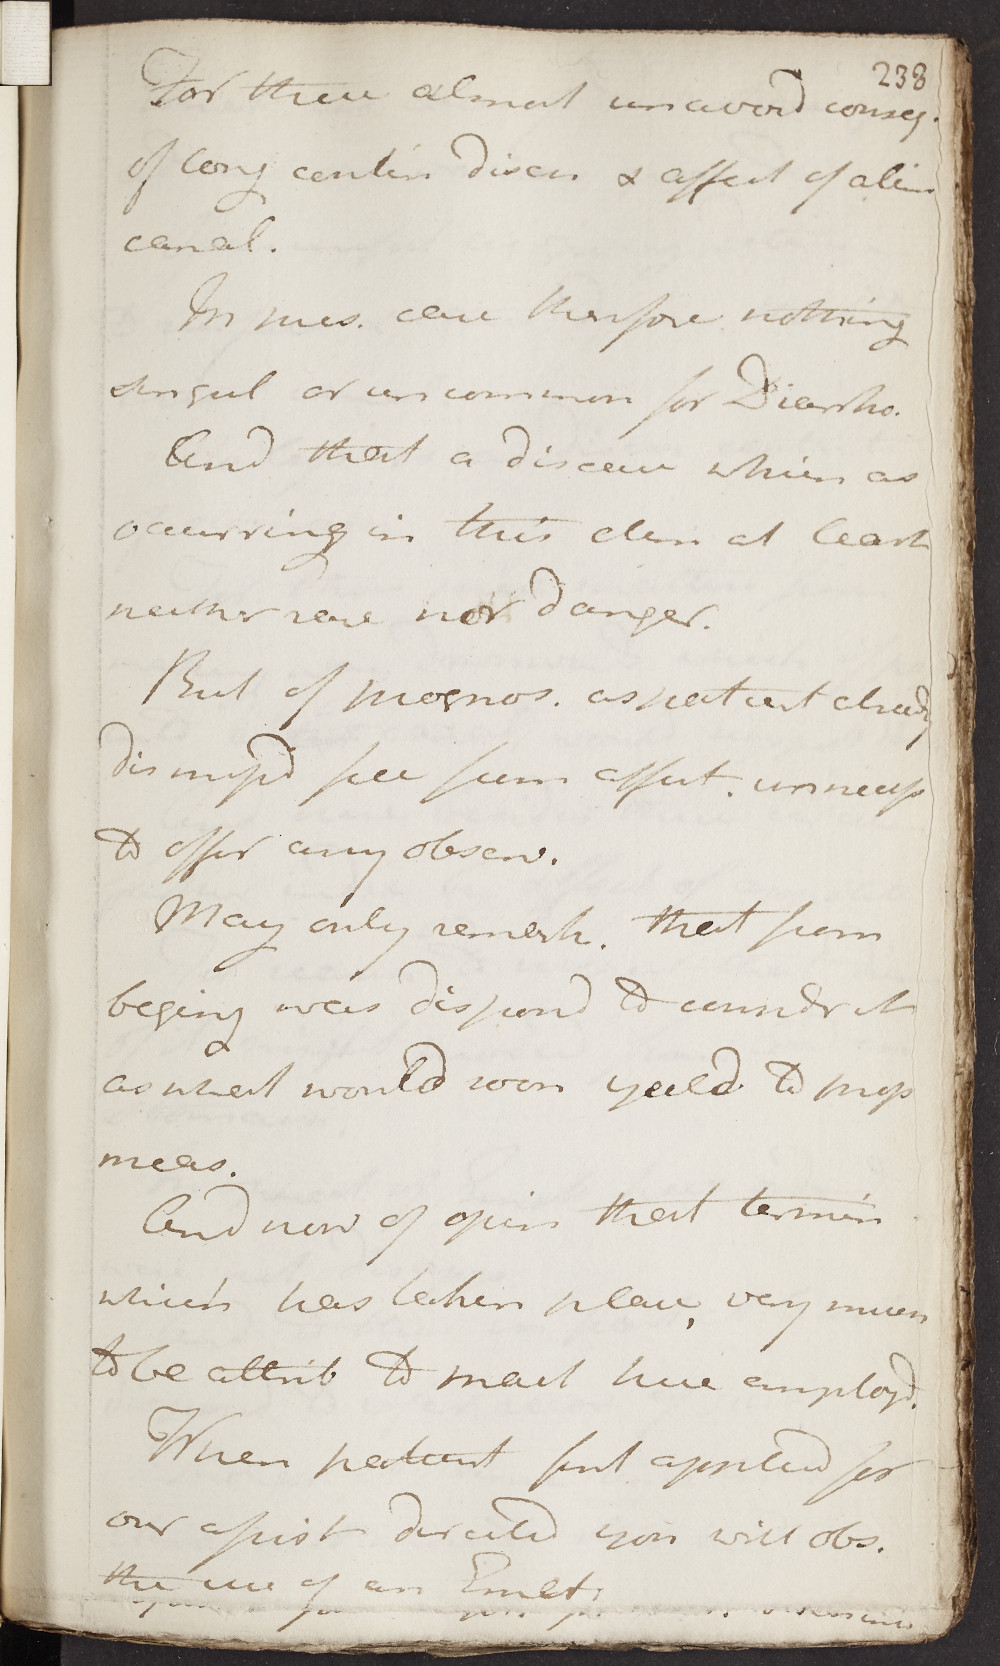 238
For these almost unavoid conseq.
of long contin diseas & affect of alim
canal.
In pres. case therefore nothing
singul or uncommon for Diarrho.
And that a disease which as
occurring in this clim at least
neither rare nor danger.
But of prognos. as patient already
dismiss'd free from affect. unnecess
to offer any observ.
May only remark. that from
begining was disposed to consider it
as what would soon yeeld to prop
meas.
And now of opin that termin
which has taken place, very much
to be attrib to med here employd.
When patient first applied for
our assist directed you will obs.
the use of an Emet;